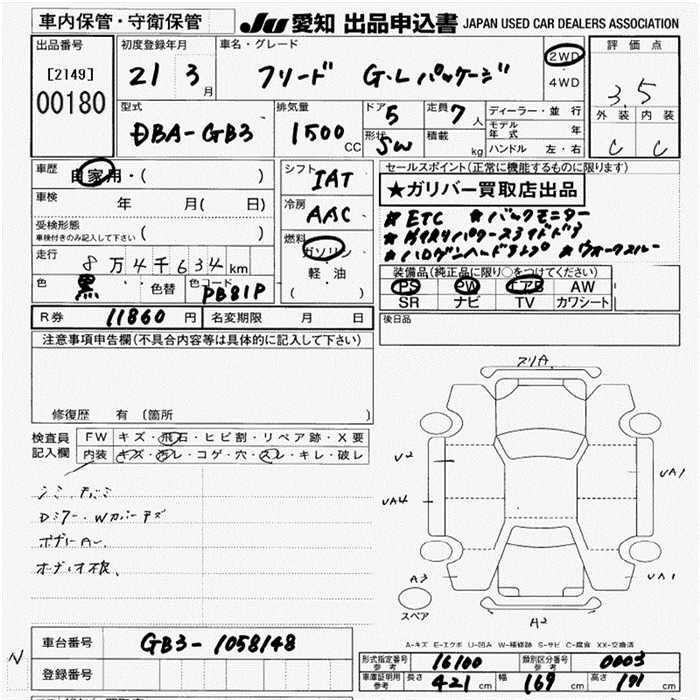 車内保管・守衛保管 JU 愛知 出品申込書 JAPAN USED CAR DEALERS ASSOCIATION
出品番号 初度登録年月 車名・グレード 2WD 評価点
[2149] 21 3月 フリード G・Lパッケージ 4WD 3.5
00180 型式 排気量 ドア 5 定員 7人 ディーラー・並行 外装 内装
DBA-GB3 1500CC 形状 SW 積載 kg モデル年式 年 C C
ハンドル 左・右
車歴 自家用・( ) シフト IAT セールスポイント(正常に機能するものに限ります)
車検 年 月( 日) 冷房 AAC ★ガリバー買取店出品
受検形態 ( ) ★ETC ★バックモニター
車検付きのみ記入して下さい 燃料 ガソリン
走行 8万4千634km 軽・油 ★ハロゲンヘッドランプ ★ウォークスルー
色 黒 色替 色コード PB81P ( ) 装備品(純正品に限り○をつけてください)
PS PW エアB AW
SR ナビ TV カワシート
R券 11860円 名変期限 月 日 後日品
注意事項申告欄(不具合内容等は具体的に記入して下さい)
修復歴 有 (箇所 )
検査員 FW キズ・飛石・ヒビ割・リペア跡・X要
記入欄 内装 キズ・汚レ・コゲ・穴・スレ・キレ・破レ
スリA
U2
UA1
UA4
A3
UA1
スペア
A2
A-キズ E-エクボ U-凹み W-補修跡 S-サビ C-腐食 XX-交換済
車台番号 GB3-1058148
登録番号
形式指定番号 参考 16100 類別区分番号 参考 0003
車庫証明用 参考 長さ 421cm 幅 169cm 高さ 171cm